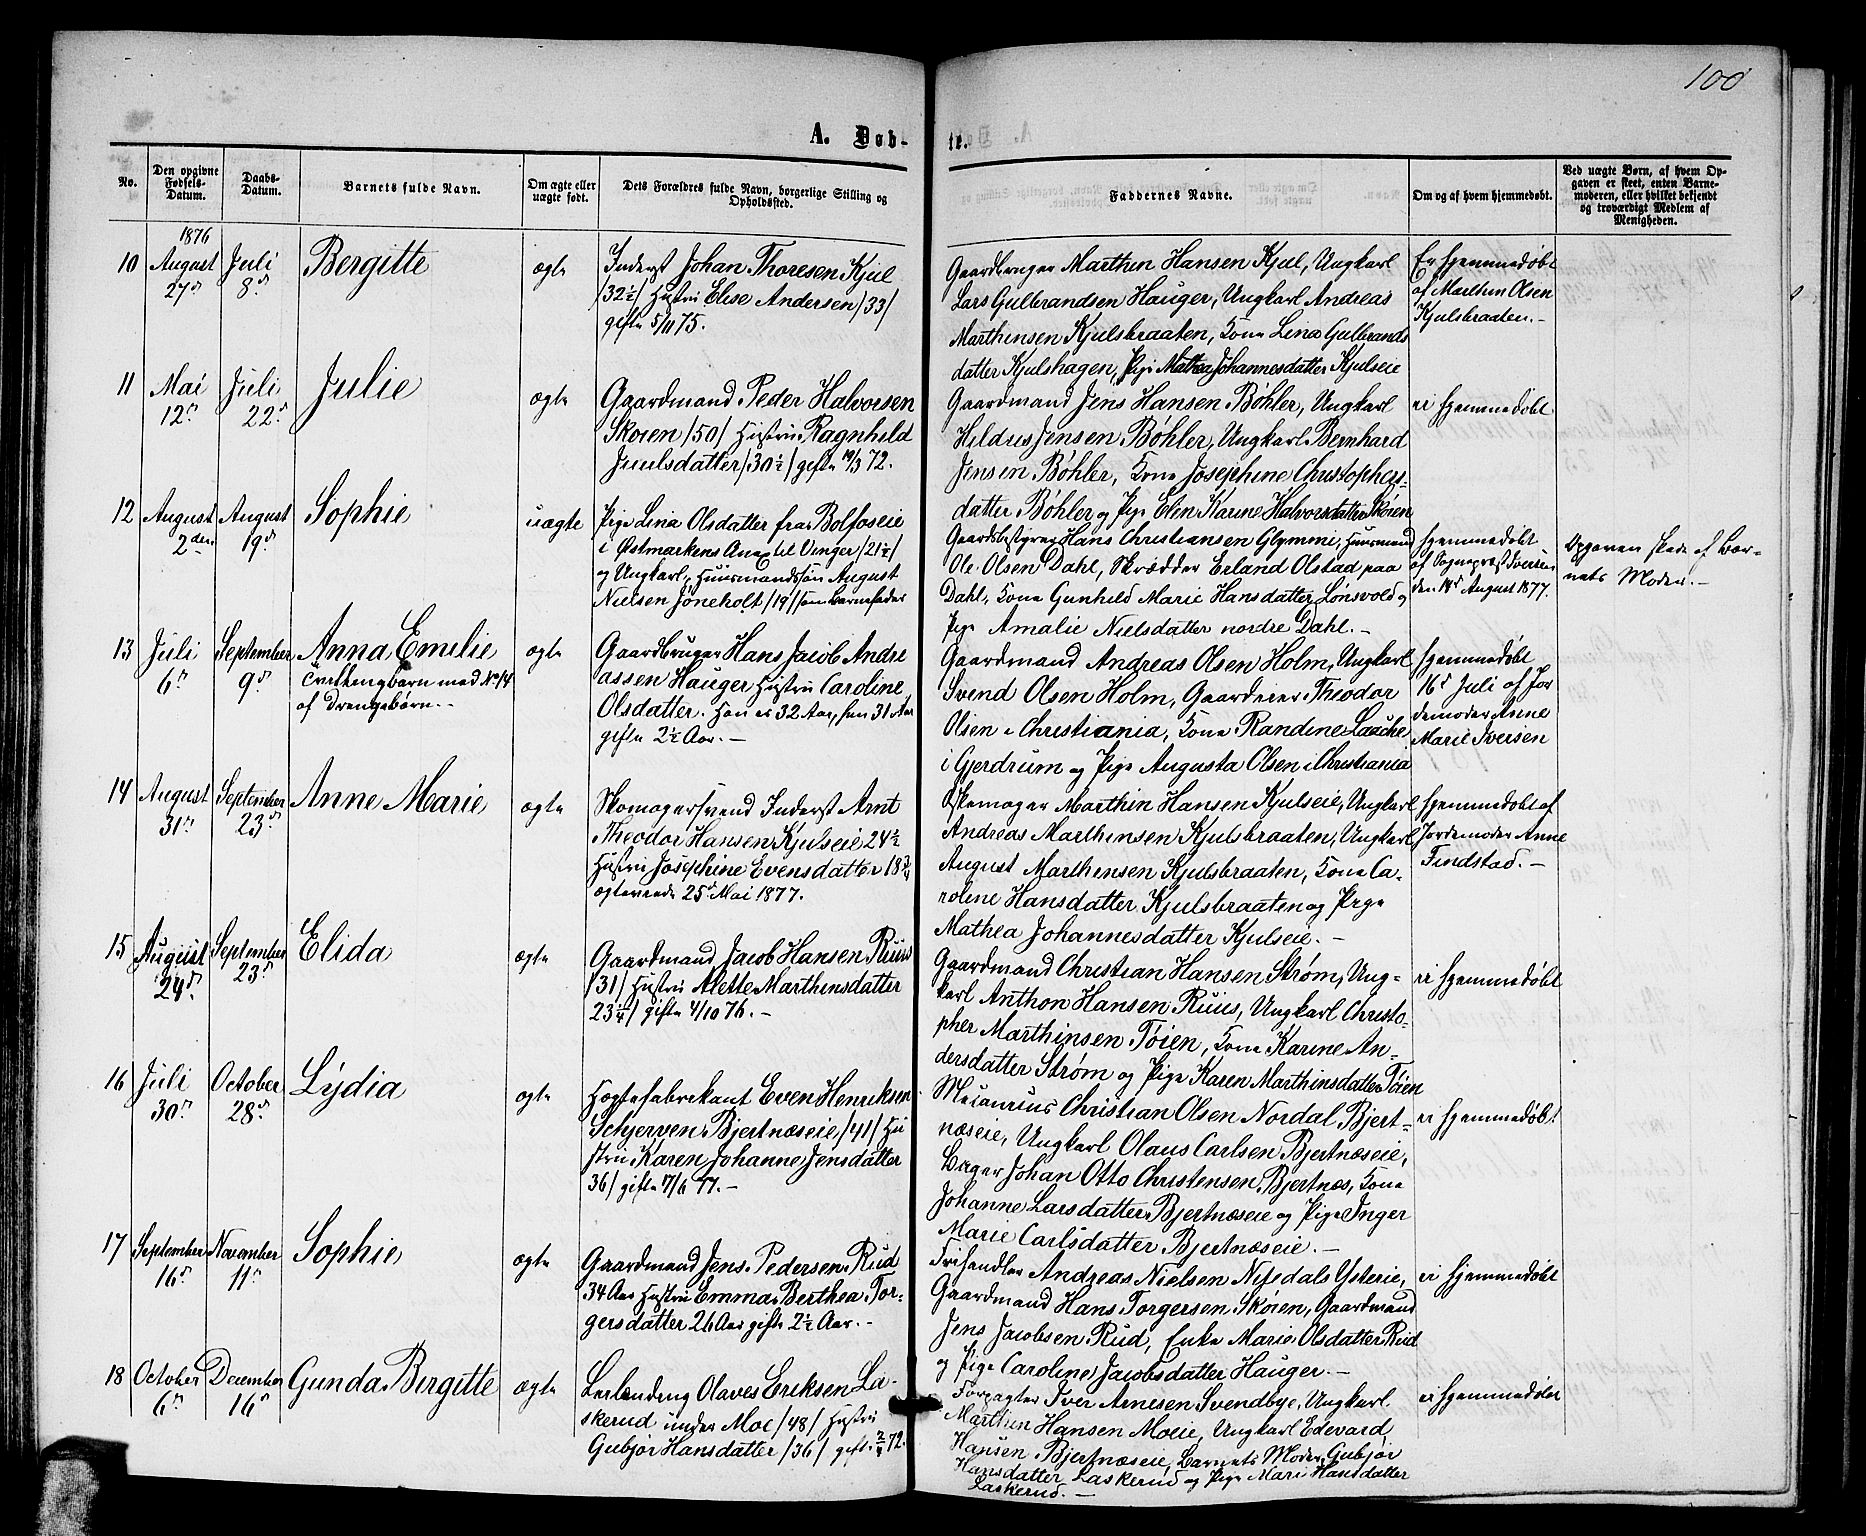 100
A. Døb-
te.
No.
Den opgivne Fødsels-Datum.
Daabs-Datum.
Barnets fulde Navn.
Om ægte eller uægte født.
Dets Forældres fulde Navn, borgerlige Stilling og Opholdssted.
Faddernes Navne.
Om og af hvem hjemmedøbt.
Ved uægte Børn, af hvem Opgaven er skeet, enten Barnemoderen, eller hvilket bekjendt og troværdigt Medlem af Menigheden.
10
1876
August
27de
Juli
8de
Bergitte
ægte
Inderst Johan Thoresen Kjul
/32½/ Hustru Elise Andersen /33/
gifte 5/11 75.
Gaardbruger Marthin Hansen Kjul, Ungkarl
Lars Gulbrandsen Hauger, Ungkarl Andreas
Marthinsen Kjulsbraaten, Kone Lina Gulbrands
datter Kjulshagen, Pige Mathea Johannesdatter Kjulseie
Er hjemmedøbt
af Marthin Olsen
Kjulsbraaten.-
11
Mai
12te
Juli
22de
Julie
ægte
Gaardmand Peder Halvorsen
Skøien /50/ Hustru Ragnhild
Juulsdatter /30½/ gifte 19/3 72.
Gaardmand Jens Hansen Bøhler, Ungkarl
Hildus Jensen Bøhler, Ungkarl Bernhard
Jensen Bøhler, Kone Josephine Christophers-
datter Bøhler og Pige Elen Karine Halvorsdatter Skøien
ei hjemmedøbt
12
August
2den
August
19de
Sophie
uægte
Pige Lina Olsdatter fra Bolfoseie
i Østmarkens Anex til Vinger /21½/
og Ungkarl, Huusmandssøn August
Nielsen Jøneholt /19/ som Barnefader
Gaardsbestyrer Hans Christiansen Glymme, Huusmand
Ole Olsen Dahl, Skrædder Erland Olstad paa
Dahl, Kone Gunhild Marie Hansdatter Lønsvold og
Pige Amalie Nielsdatter nordre Dahl.-
hjemmedøbt
af Sognepræst Iversen
den 18de August 1877.
Opgaven skede af Bar-
nets Moder.-
13
Juli
6te
September
9de
Anna Emilie
Tvillingbarn med No 14
af Drengebørn.-
ægte
Gaardbruger Hans Jacob Andre
assen Hauger Hustru Caroline
Olsdatter. Han er 32 Aar, hun 31 Aar
gifte 2½ Aar.-
Gaardmand Andreas Olsen Holm, Ungkarl
Svend Olsen Holm, Gaardeier Theodor
Olsen i Christiania, Kone Randine Laache
i Gjerdrum og Pige Augusta Olsen i Christiania
hjemmedøbt
16de Juli af Jor
demoder Anne
Marie Iversen
14
August
31te
September
23de
Anne Marie
ægte
Skomagersvend Inderst Arnt
Theodor Hansen Kjulseie 24½
Hustru Josephine Evensdatter 18¾
ægteviede 25de Mai 1877.
Skomager Marthin Hansen Kjulseie, Ungkarl
Andreas Marthinsen Kjulsbraaten, Ungkarl
August Marthinsen Kjulsbraaten, Kone Ca-
roline Hansdatter Kjulsbraaten og Pige
Mathea Johannesdatter Kjulseie.-
hjemmedøbt af
Jordemoder Anne
Tindstad.-
15
August
24de
September
23de
Elida
ægte
Gaardmand Jacob Hansen Ruus
/31/ Hustru Alette Marthinsdatter
23¼/ gifte 4/10 76.-
Gaardmand Christian Hansen Strøm, Ung-
karl Anthon Hansen Ruus, Ungkarl Christo-
pher Marthinsen Tøien, Kone Karine An-
dersdatter Strøm og Pige Karen Marthinsdatter Tøien
ei hjemmedøbt
16
Juli
30te
October
28de
Lydia
ægte
Hægtefabrikant Even Henriksen
Schjerven Bjertnæseie /41/ Hu
stru Karen Johanne Jensdatter
36/ gifte 7/6 77.-
Christian Olsen Nordal Bjert-
næseie, Ungkarl Olaus Carlsen Bjertnæseie,
Bager Johan Otto Christensen Bjertnæs, Kone
Johanne Larsdatter Bjertnæseie og Pige Inger
Marie Carlsdatter Bjertnæseie.-
ei hjemmedøbt
17
September
16de
November
11te
Sophie
ægte
Gaardmand Jens Pedersen Rud
34 Aar Hustru Emma Berthea Tor-
gersdatter 26 Aar gifte 2½ Aar.-
Frihandler Andreas Nielsen Nitedals Ysterie,
Gaardmand Hans Torgersen Skøien, Gaardmand
Jens Jacobsen Rud, Enke Marie Olsdatter Rud
og Pige Caroline Jacobsdatter Hauger.-
ei hjemmedøbt
18
October
6te
December
16de
Gunda Birgitte
ægte
Leilending Olaves Eriksen La-
skerud under Moe /48/ Hustru
Gubjør Hansdatter /36/ gift 2/4 72.
Forpagter Iver Arnesen Svendbye, Ungkarl
Marthin Hansen Moeie, Ungkarl Edevard
Hansen Bjertnæseie, Barnets Moder Gubjør
Hansdatter Laskerud og Pige Mari Hansdatter
Laskerud.-
ei hjemmedøbt